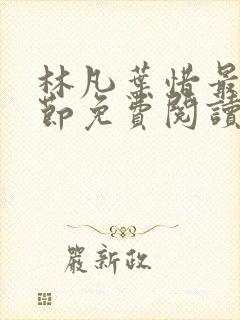 林凡葉惜最
節免費閱讀
嚴新政